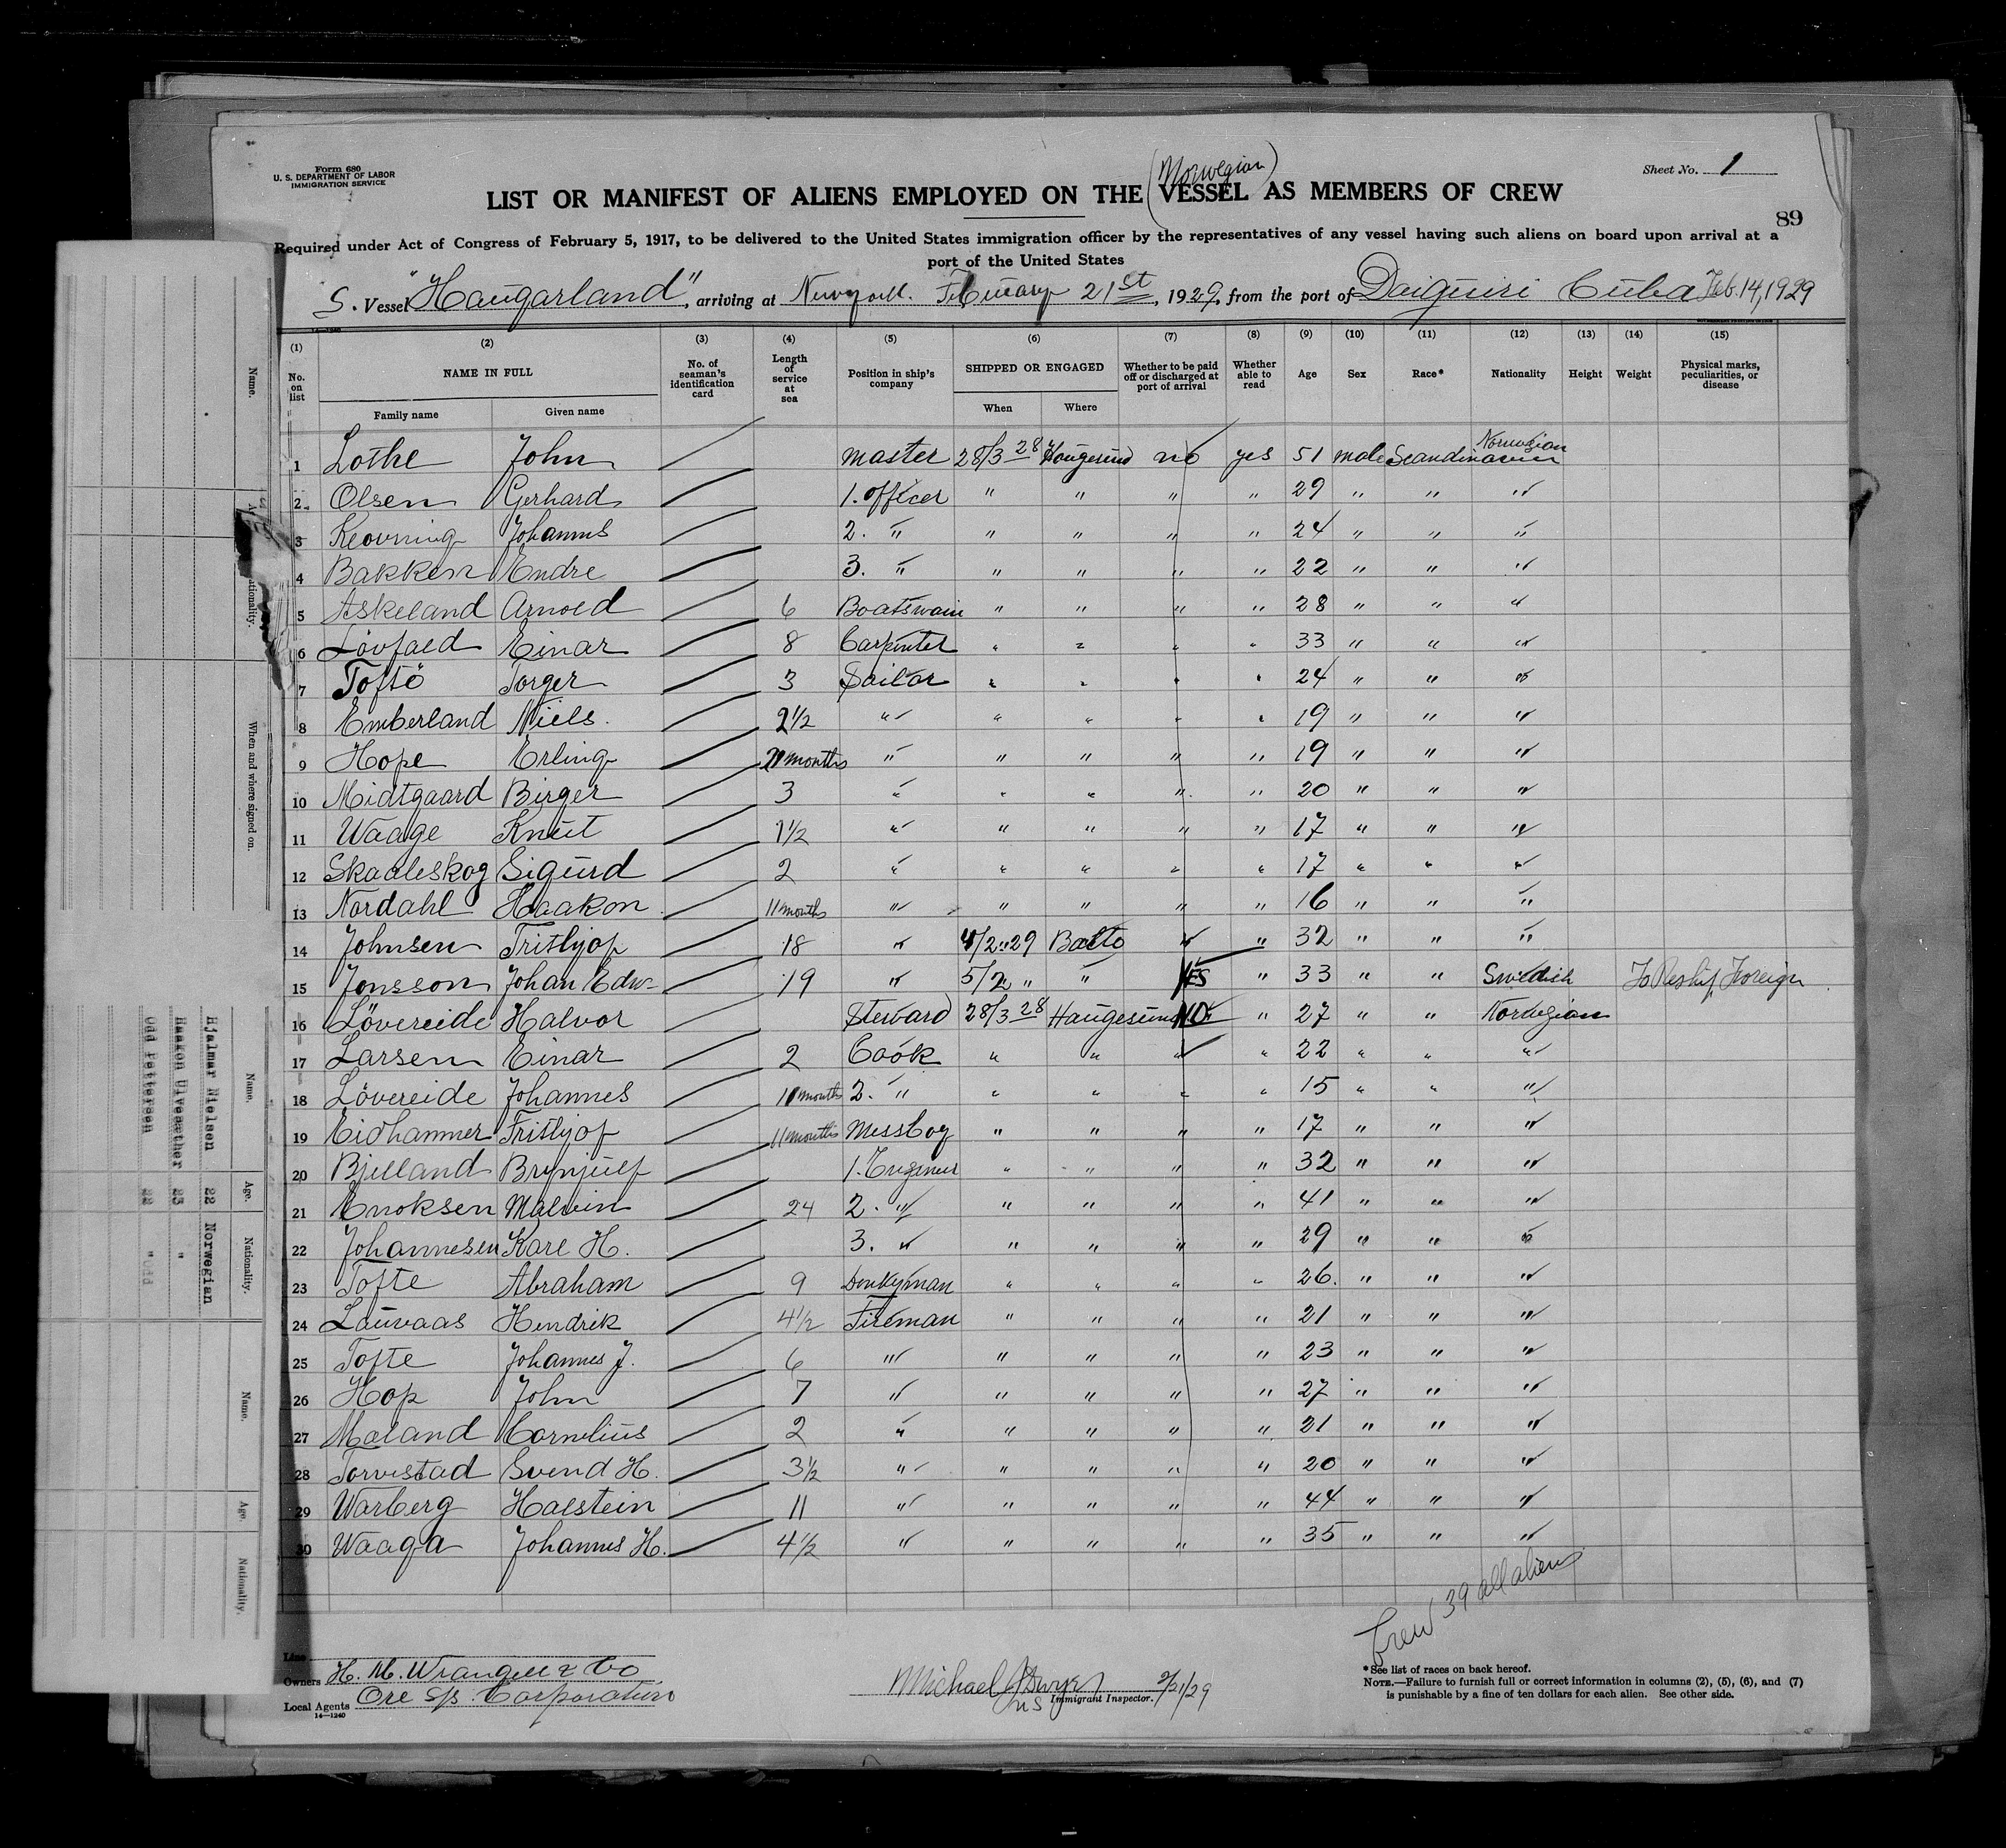 Form 680
U. S. DEPARTMENT OF LABOR
IMMIGRATION SERVICE
(Norwegian)
Sheet No. 1
LIST OR MANIFEST OF ALIENS EMPLOYED ON THE VESSEL AS MEMBERS OF CREW
89
Required under Act of Congress of February 5, 1917, to be delivered to the United States immigration officer by the representatives of any vessel having such aliens on board upon arrival at a
port of the United States
S. Vessel "Haugarland", arriving at Newyork. February 21st, 1929, from the port of Daiquiri Cuba Feb. 14, 1929
(1) (2) (3) (4) (5) (6) (7) (8) (9) (10) (11) (12) (13) (14) (15)
No. on list NAME IN FULL Family name Given name No. of seaman's identification card Length of service at sea Position in ship's company SHIPPED OR ENGAGED When Where Whether to be paid off or discharged at port of arrival Whether able to read Age Sex Race* Nationality Height Weight Physical marks, peculiarities, or disease
1 Lothe John master 28/3 28 Haugesund no yes 51 male Scandinavien Norwegian
2 Olsen Gerhard 1. officer " " " " 29 " " "
3 Johannes 2. " " " " " 24 " " "
4 Bakken Endre 3. " " " " " 22 " " "
5 Askeland Arnold 6 Boatswain " " " " 28 " " "
6 Lövfald Einar 8 Carpenter " " " " 33 " " "
7 Toftö Torger 3 Sailor " " " " 24 " " "
8 Emberland Niels. 2 1/2 " " " " " 19 " " "
9 Hope Erling months " " " " " 19 " " "
10 Midtgaard Birger 3 " " " " " 20 " " "
11 Waage Knut 1 1/2 " " " " " 17 " " "
12 Skaaleskog Sigurd 2 " " " " " 17 " " "
13 Nordahl Haakon 11 months " " " " " 16 " " "
14 Johnsen Frithjof 18 " 4/2 "29 Balto " " 32 " " "
15 Jonsson Johan Edw- 19 " 5/2 " " YES " 33 " " Swedish To Reship Foreign
16 Lövereide Halvor Steward 28/3 28 Haugesund NO " 27 " " Norwegian
17 Larsen Einar 2 Cook " " " " 22 " " "
18 Lövereide Johannes 11 months 2. " " " " " 15 " " "
19 Eidhammer Frithjof 11 months Messboy " " " " 17 " " "
20 Bjelland Brynjulf 1. Engineer " " " " 32 " " "
21 Enoksen Malvin 24 2. " " " " " 41 " " "
22 Johannesen Kare H. 3. " " " " " 29 " " "
23 Tofte Abraham 9 Donkeyman " " " " 26. " " "
24 Lauvaas Hendrik 4 1/2 Fireman " " " " 21 " " "
25 Tofte Johannes J. 6 " " " " " 23 " " "
26 Hop John 7 " " " " " 27 " " "
27 Maland Cornelius 2 " " " " " 21 " " "
28 Torvestad Svend H. 3 1/2 " " " " " 20 " " "
29 Warberg Halstein 11 " " " " " 44 " " "
30 Waaga Johannes H. 4 1/2 " " " " " 35 " " "
Crew 39 all aliens
Line
Owners H. M. Wrangell & Co
Local Agents Ore s/s. Corporation
14—1240
Michael Dwyer 2/21/29
Immigrant Inspector.
*See list of races on back hereof.
NOTE.—Failure to furnish full or correct information in columns (2), (5), (6), and (7)
is punishable by a fine of ten dollars for each alien. See other side.
Name.
When and where signed on.
Name.
Age.
Nationality.
Name.
Age.
Nationality.
Hjalmar Nielsen 22 Norwegian
Haakon Ulvesæther 23 "
Odd Pettersen 22 "